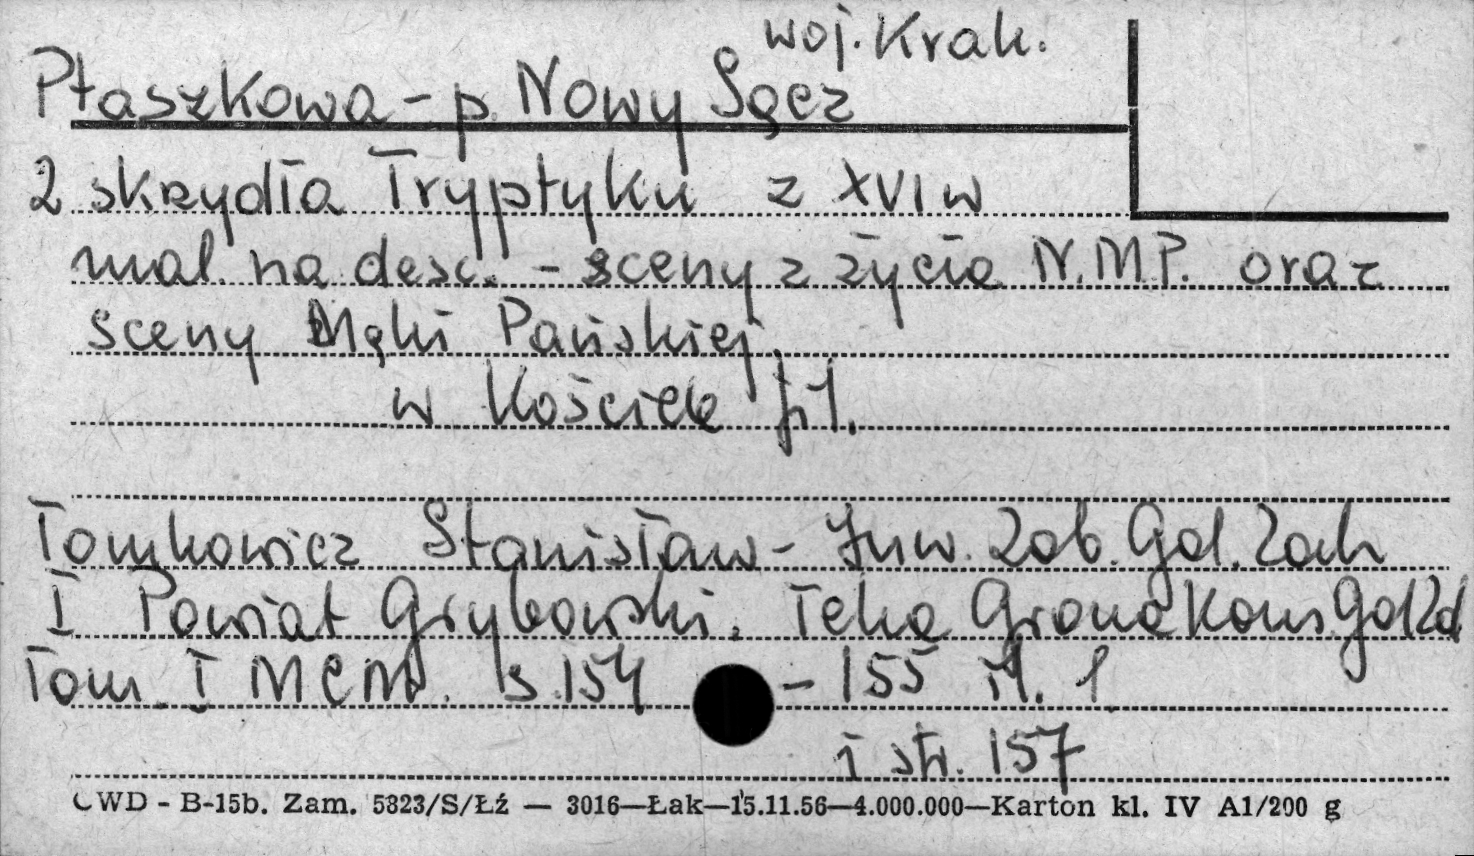 woj. Krak.
Ptaszkowa - p. Nowy Sącz
2 skrzydła Tryptyku z XVI w
mal. na desc. - sceny z życia N.M.P. oraz
sceny Męki Pańskiej
w Kościele fil.
Tomkowicz Stanisław - Inw. Zab. Gal. Zach
I Powiat Grybowski. Teka Grona Kons Gal Zd
Tom I MCM. s. 154 - 155 il. 1
i str. 157
CWD - B-15b. Zam. 5323/S/Łź — 3016—Łak—15.11.56—4.000.000—Karton kl. IV A1/200 g